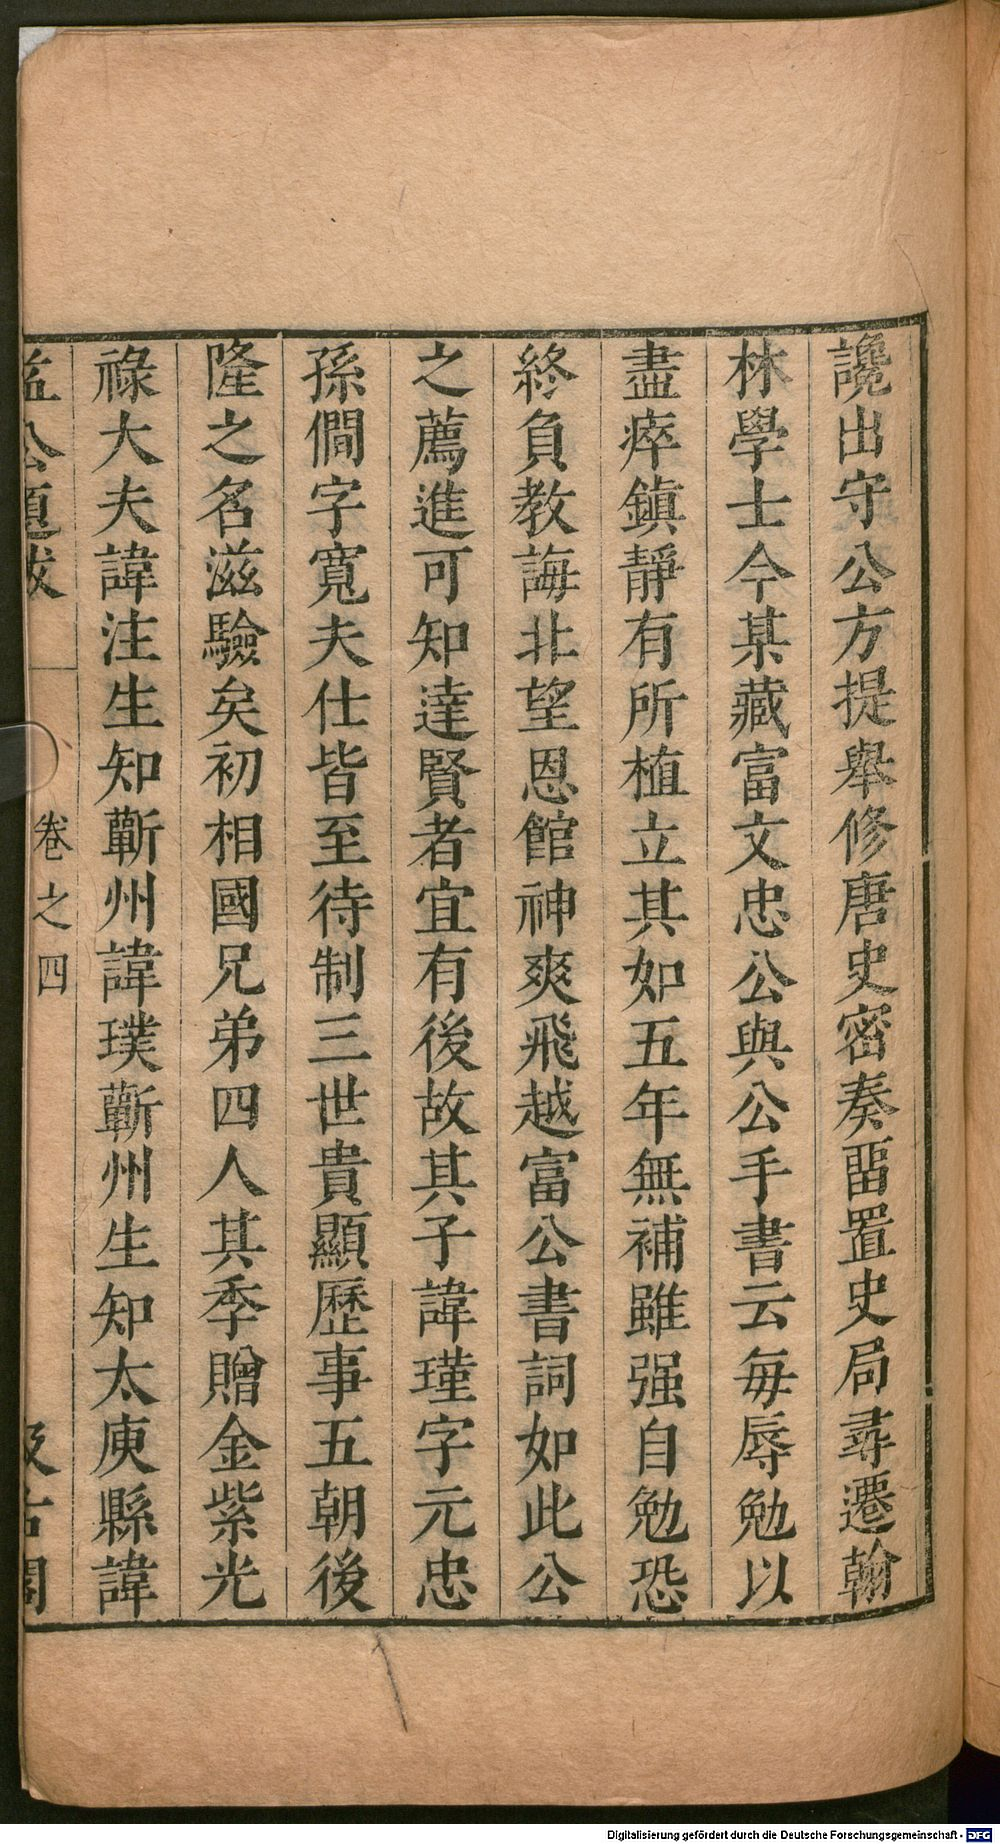 讒出守公方提舉修唐史密奏畱置史局尋遷翰
林學士今某藏富文忠公與公手書云每辱勉以
盡瘁鎮靜有所植立其如五年無補雖强自勉恐
終負教誨北望恩館神爽飛越富公書詞如此公
之薦進可知達賢者宜有後故其子諱瑾字元忠
孫僩字寬夫仕皆至待制三世貴顯歷事五朝後
隆之名滋驗矣初相國兄弟四人其季贈金紫光
祿大夫諱注生知蘄州諱璞蘄州生知太庾縣諱
益公題跋 卷之四 汲古閣
Digitalisierung gefördert durch die Deutsche Forschungsgemeinschaft - DFG